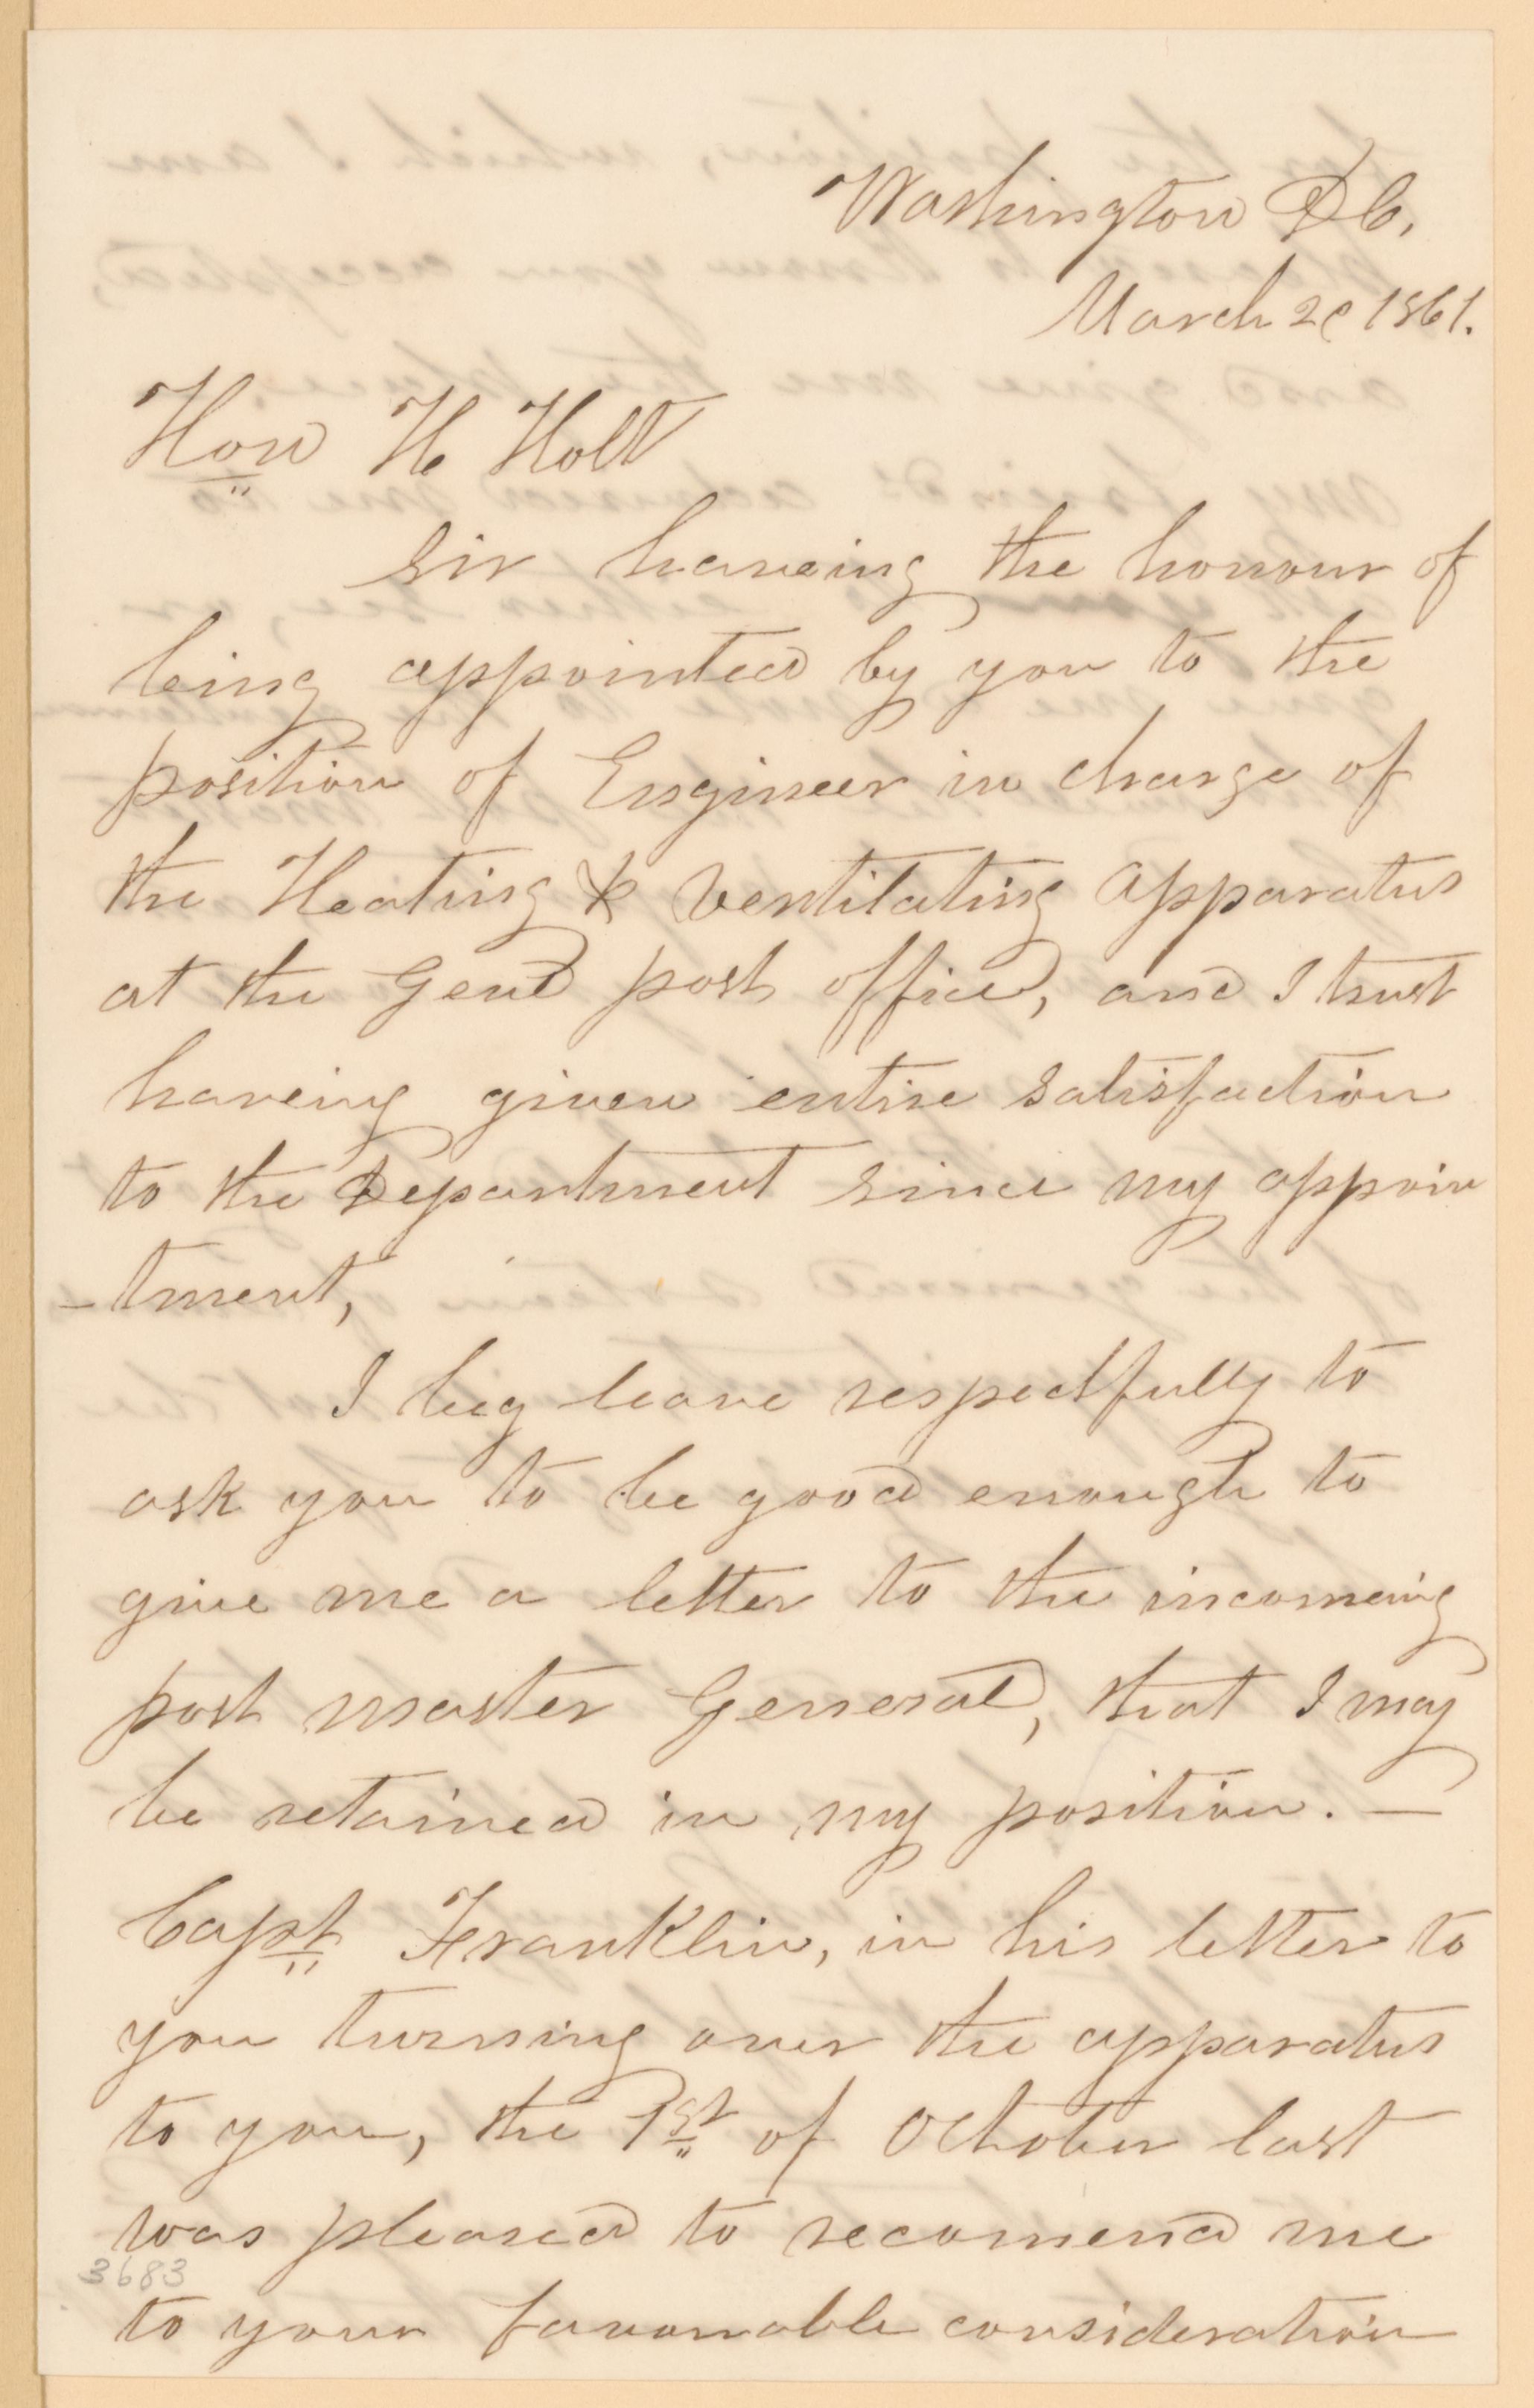 Washington DC,
March 2d 1861.
Hon H Holt
Sir haveing the honour of
being appointed by you to the
position of Engineer in charge of
the Heating & Ventilating Apparatus
at the Genl post office, and I trust
haveing given entire satisfaction
to the Department since my appoin
-tment,
I beg leave respectfully to
ask you to be good enough to
give me a letter to the incomeing
post master General, that I may
be retained in my position. —
Capt Franklin, in his letter to
you turning over the apparatus
to you, the 1st of October last
was pleased to recomend me
3683
to your favourable consideration